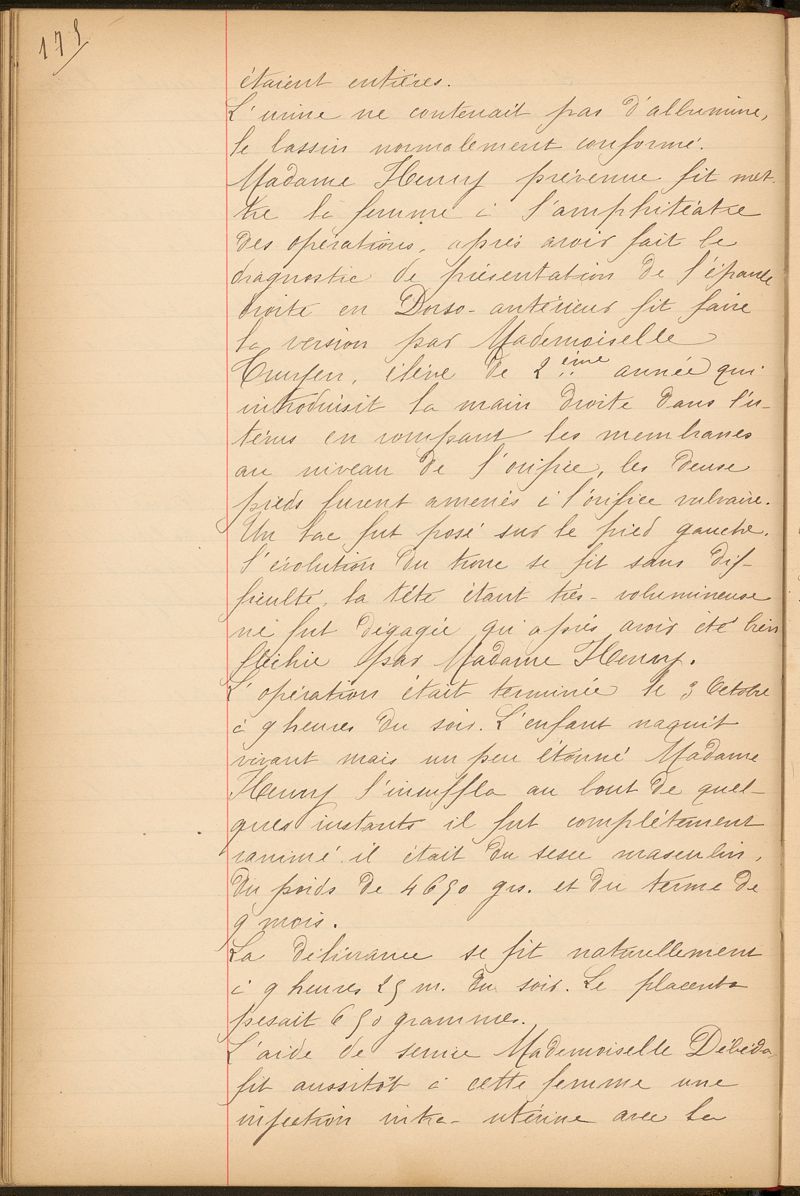 175
étaient entières.
L'urine ne contenait pas d'albumine,
le bassin normalement conformé.
Madame Henry prévenue fit met-
tre la femme à l'amphitéâtre
des opérations, après avoir fait le
diagnostic de présentation de l'épaule
droite en Dorso-antérieur fit faire
la version par Mademoiselle
élève de 2ème année qui
introduisit la main droite dans l'u-
térus en rompant les membranes
au niveau de l'orifice, les deux
pieds furent amenés à l'orifice vulvaire.
Un lac fut posé sur le pied gauche.
l'évolution du tronc se fit sans dif-
ficulté, la tête étant très-volumineuse
ne fut dégagée qu'après avoir été bien
fléchie par Madame Henry.
L'opération était terminée le 3 Octobre
à 9 heures du soir. L'enfant naquit
vivant mais un peu étonné Madame
Henry l'insuffla au bout de quel-
ques instants il fut complétement
ranimé. il était du sexe masculin,
du poids de 4650 grs. et du terme de
9 mois.
La délivrance se fit naturellement
à 9 heures 25 m. du soir. Le placenta
pesait 650 grammes.
L'aide de service Mademoiselle
fit aussitôt à cette femme une
injection intra-utérine avec la